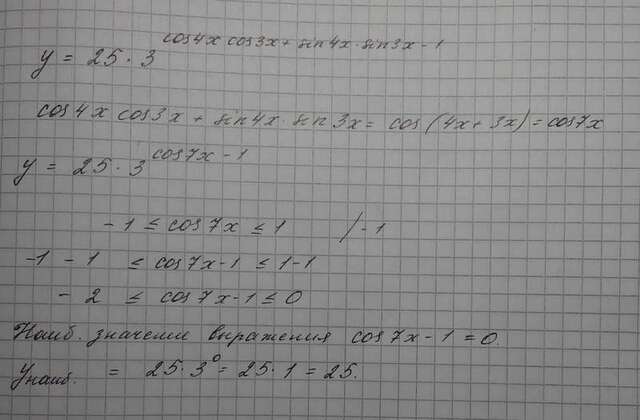 y = 25 · 3^cos4x cos3x + sin4x · sin3x - 1
cos4x cos3x + sin4x · sin3x = cos(4x + 3x) = cos7x
y = 25 · 3^cos7x - 1
-1 ≤ cos7x ≤ 1 / -1
-1 - 1 ≤ cos7x - 1 ≤ 1 - 1
- 2 ≤ cos7x - 1 ≤ 0
Наиб. значение выражения cos7x - 1 = 0.
Yнаиб. = 25 · 3^0 = 25 · 1 = 25.